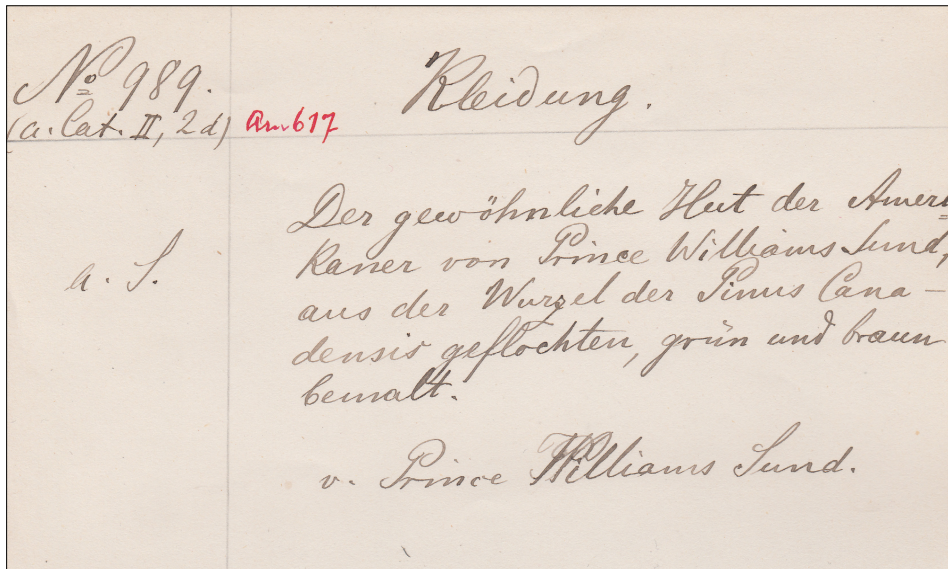 No 989.
Kleidung.
(a. Cat. II, 2 d) Am 617
a. S.
Der gewöhnliche Hut der Ameri=
kaner von Prince Williams Sund,
aus der Wurzel der Pinus Cana-
densis geflochten, grün und braun
bemalt.
v. Prince Williams Sund.